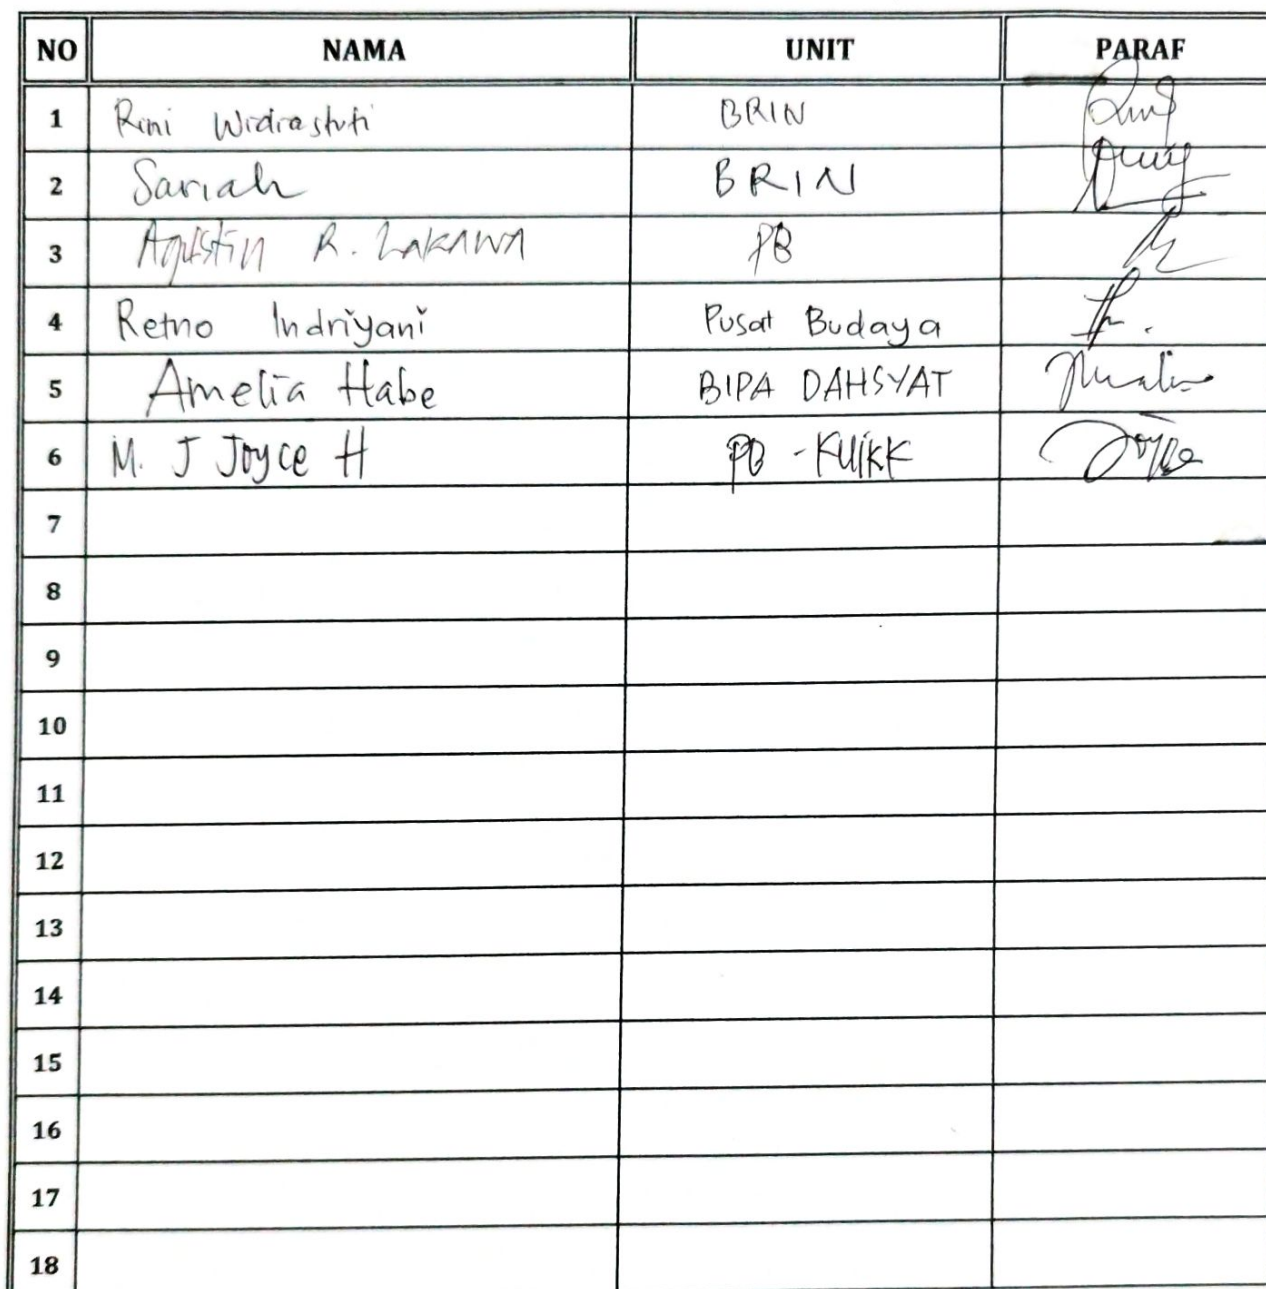 NO NAMA UNIT PARAF
1 Rini Widiastuti BRIN
2 Sariah BRIN
3 Agustin R. LAKAWA PB
4 Retno Indriyani Pusat Budaya
5 Amelia Habe BIPA DAHSYAT
6 M. J Joyce H PB - Joyce
7
8
9
10
11
12
13
14
15
16
17
18